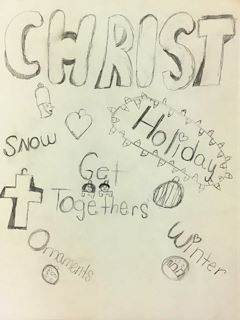 CHRIST
Holiday
SNOW
Get
Togethers
Ornaments
Winter